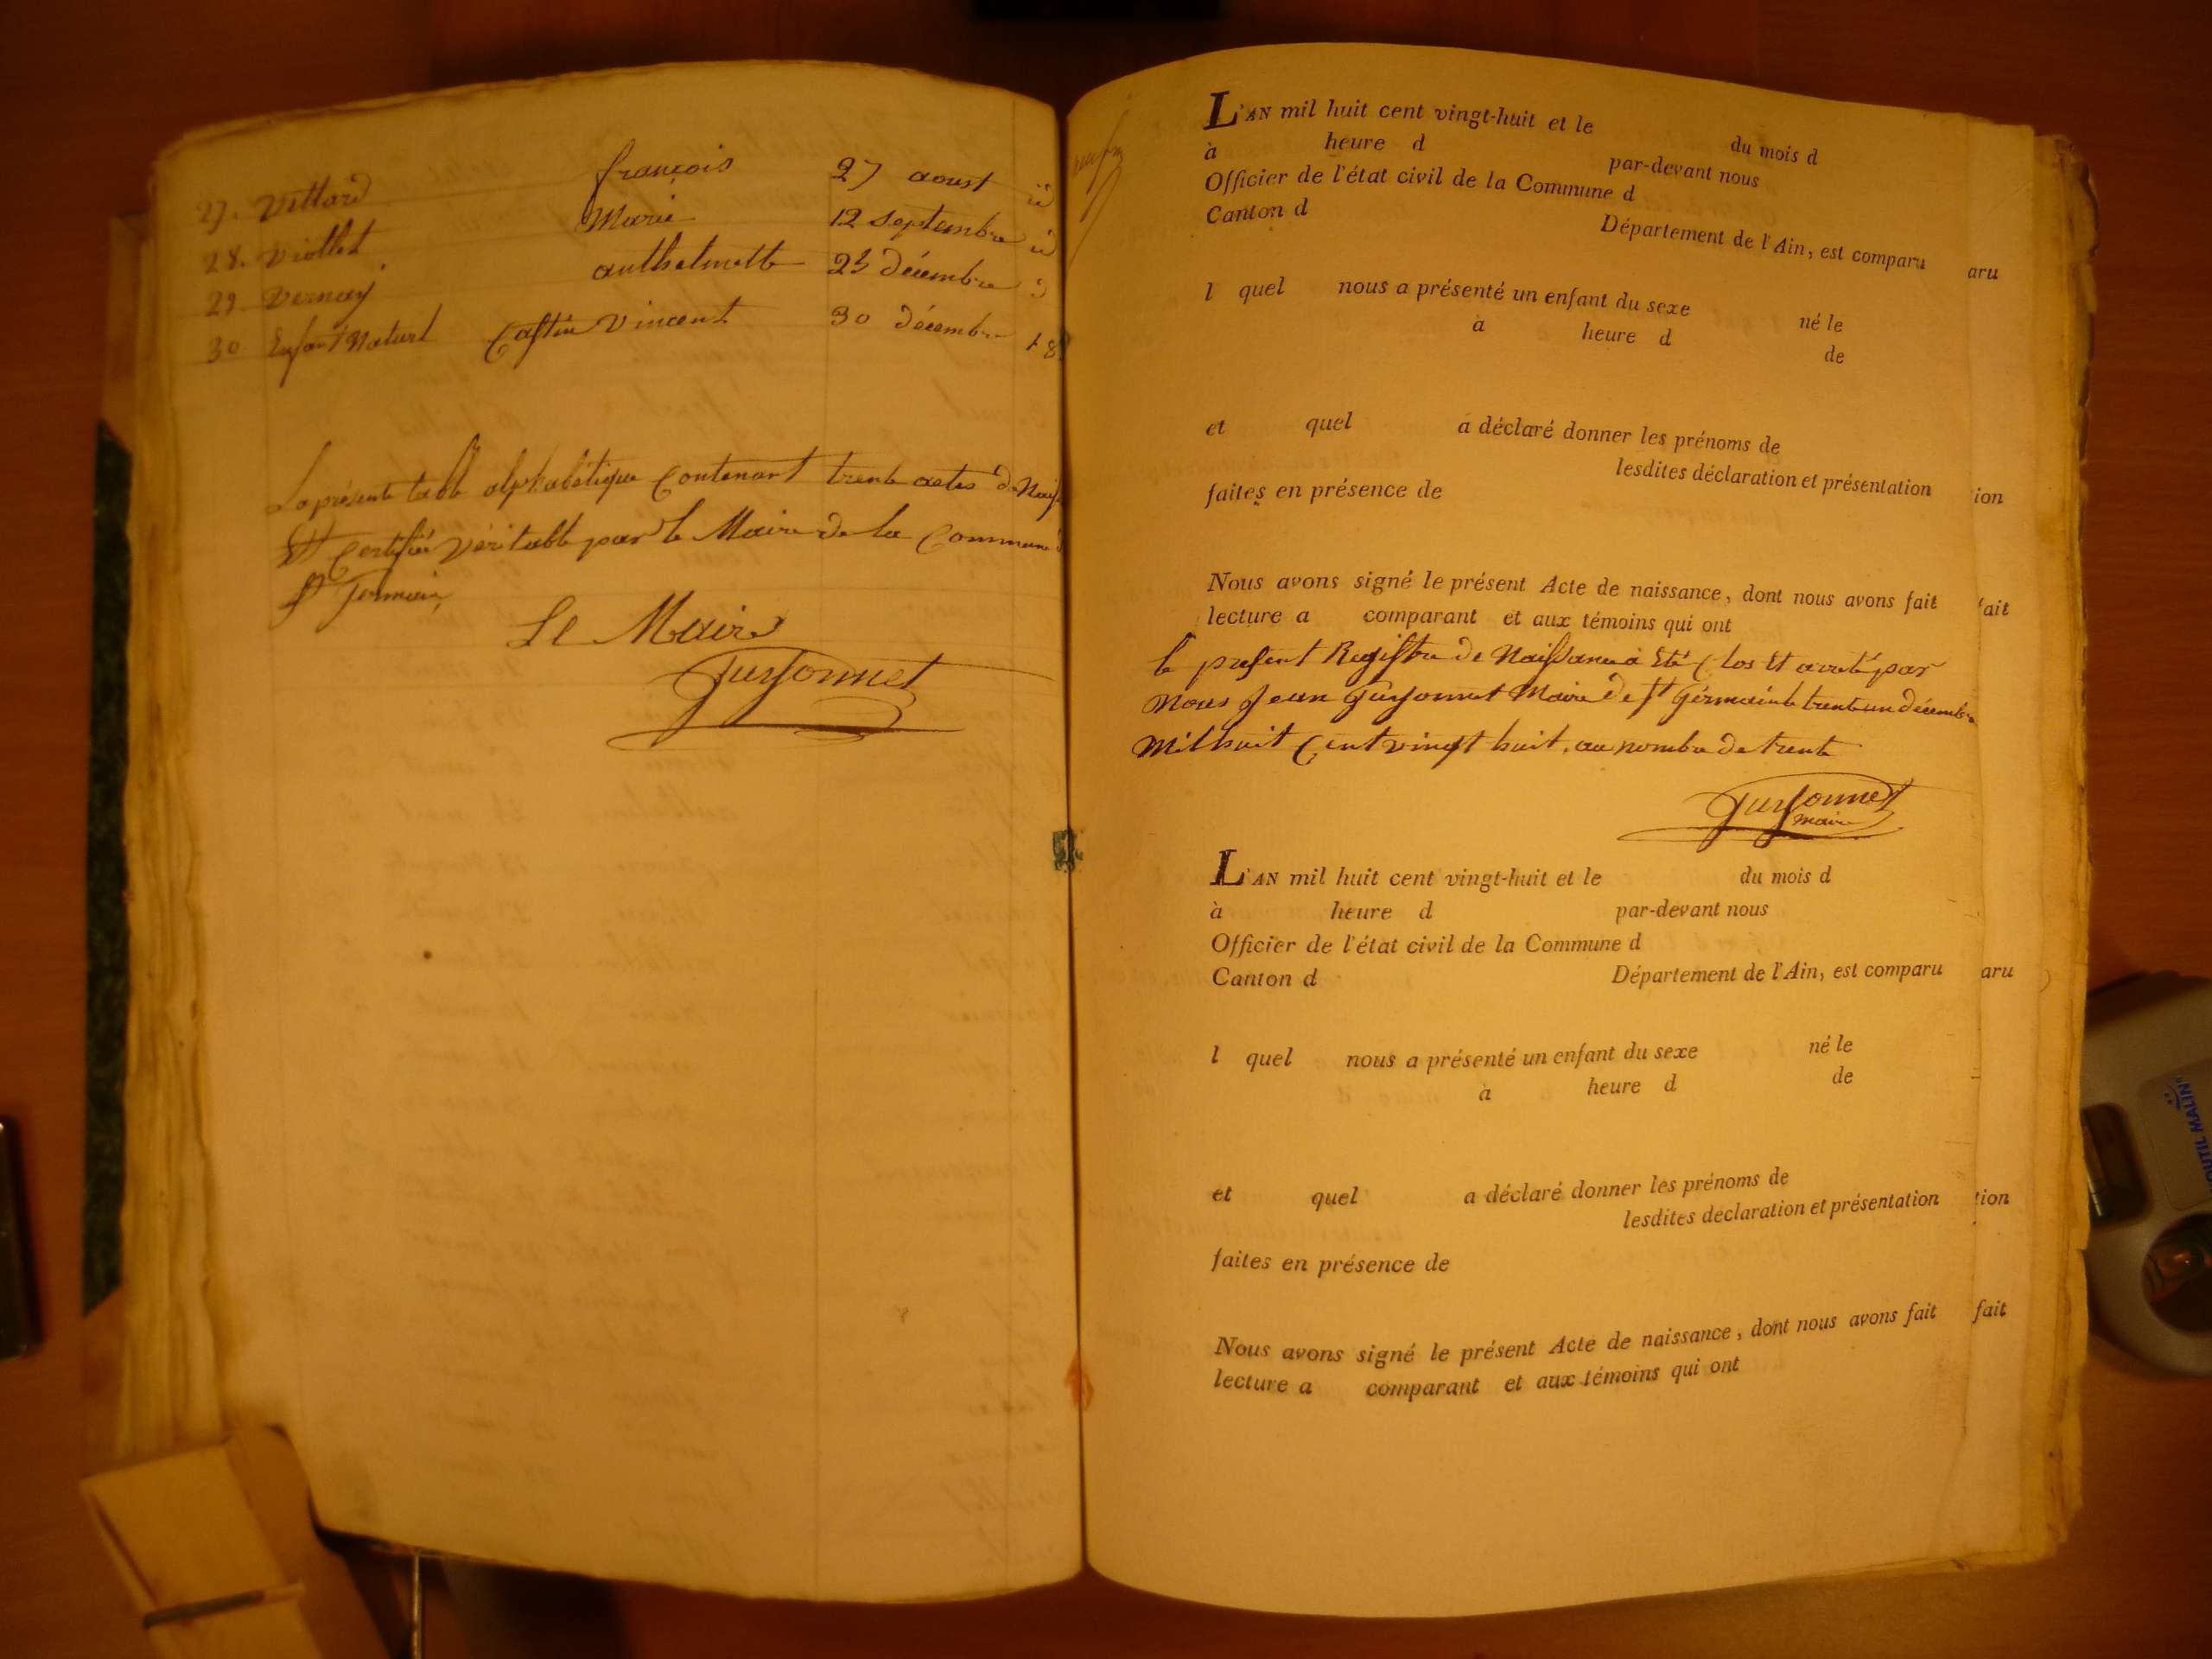 27. Villard françois 27 aoust id
28. Viollet Marie 12 septembre id
29. Vernay anthelmette 23 décembre
30 Enfant Naturel Castin Vincent 30 décembre 18
La présente table alphabétique Contenant trente actes de Naiss
Et Certifiée Véritable par le Maire de la Commune d
St Germain
Le Maire
Guysonnet
L'AN mil huit cent vingt-huit et le du mois d
à heure d par-devant nous
Officier de l'état civil de la Commune d
Canton d Département de l'Ain, est comparu aru
l quel nous a présenté un enfant du sexe né le
à heure d de
et quel a déclaré donner les prénoms de
lesdites déclaration et présentation ion
faites en présence de
Nous avons signé le présent Acte de naissance, dont nous avons fait fait
lecture a comparant et aux témoins qui ont
le present Registre de Naissance a Eté Clos Et arrêté par
Nous Jean Guysonnet Maire de St Germain le trente un décembre
Mil huit Cent vingt huit, au nombre de trente
Guysonnet
maire
L'AN mil huit cent vingt-huit et le du mois d
à heure d par-devant nous
Officier de l'état civil de la Commune d
Canton d Département de l'Ain, est comparu aru
l quel nous a présenté un enfant du sexe né le
à heure d de
et quel a déclaré donner les prénoms de
lesdites déclaration et présentation tion
faites en présence de
Nous avons signé le présent Acte de naissance, dont nous avons fait fait
lecture a comparant et aux témoins qui ont
OUTIL MALIN